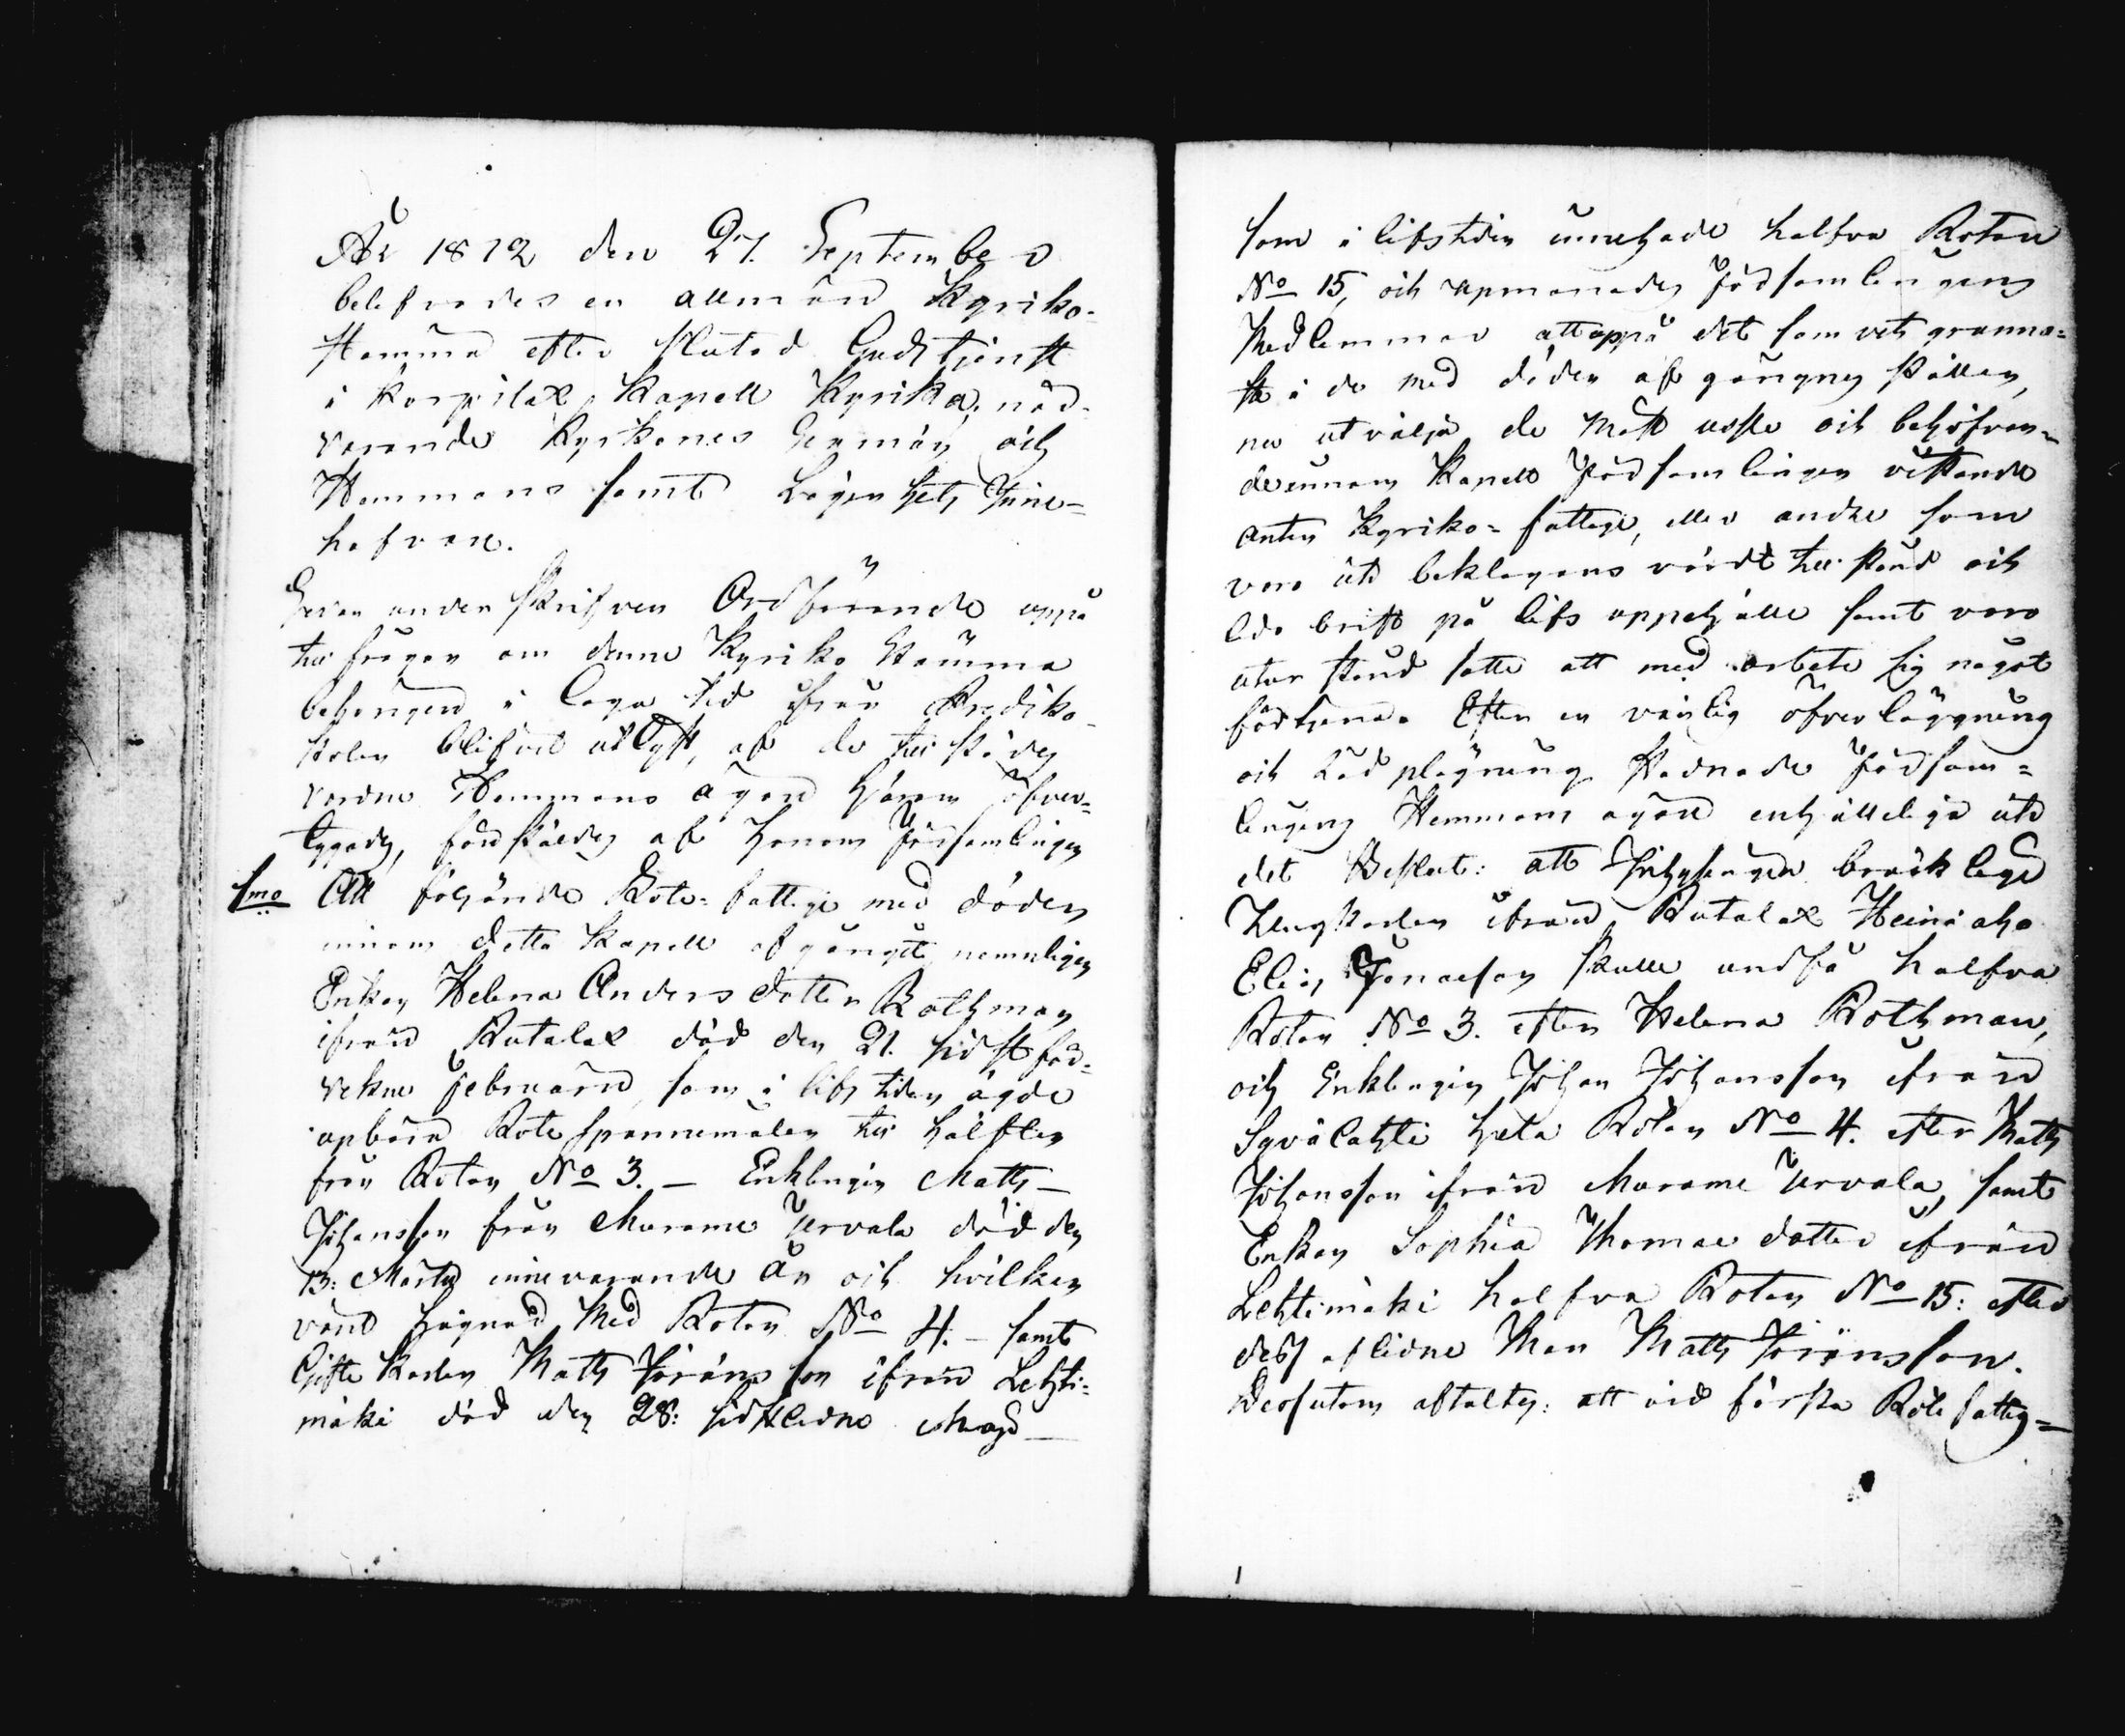 År 1812 den 27. September
belefvades en allmän Kyriko-
stämma efter slutad Gudstjenst
i Korpilax Kapell Kyrika, när-
varande Kyrkones Sexmän och
Hemmans samt Lägenhets Inne-
hafvare.
Sedan underskrifven Ordförande uppå
tillfrågan om denne Kyriko Stämma
behörigen i laga tid ifrån Prediko-
stolen blifvit utlyst, af de tillstädes
varne Hemmans ägare härom öfver-
tygades, förestäldes af honom Församlingen
1mo Att följande Rote-fattige med döden
innom detta Kapell afgångit, nemnligen
Enkan Helena Anders dotter Rothman
ifrån Rutalax död den 21. sidst för-
vekne Februarii, som i lifstiden ägde
upbära Rote spannemålen till hälften
från Roten No 3. – Enklingen Matts
Johansson från Murame Urvala död den
13: Martii innevarande År och hvilken
varit hägnad med Roten No 4. – samt
Gifte Karlen Matts Göransson ifrån Lehti-
mäki död den 28: sidstledne Maji –
som i lifstiden innehade halfva Roten
No 15, och upmanades Församlingens
Medlemmar att uppå det samvets granna-
ste i de med döden afgångnes ställen,
nu utvälja de mäst usle och behöfvan-
de innom Kapell Församlingen vistande
anten Kyriko-fattige, eller andre som
voro uti beklagansvärdt tillstånd och
lida brist på lifs uppehälle samt voro
utur stånd satte att med arbete sig något
förtjena. Efter en vänlig öfverläggning
och rådplägning stadnade Församm-
lingens Hemmans ägare enhälleligen uti
det Beslut: att Inhysingen bräcklige
Ungkarlen ifrån Rutalax Heinäaho
Elias Jonaeson skulle undfå halfva
Roten No 3. efter Helena Rothman,
och Enklingen Johan Johansson ifrån
Syvälahti hela Roten No 4. efter Matts
Johansson ifrån Murame Urvala, samt
Enkan Sophia Thomae dotter ifrån
Lehtimäki halfva Roten No 15: efter
dess aflidne Man Matts Göransson.
Dessutom aftaltes: att vid första Rote fattig-